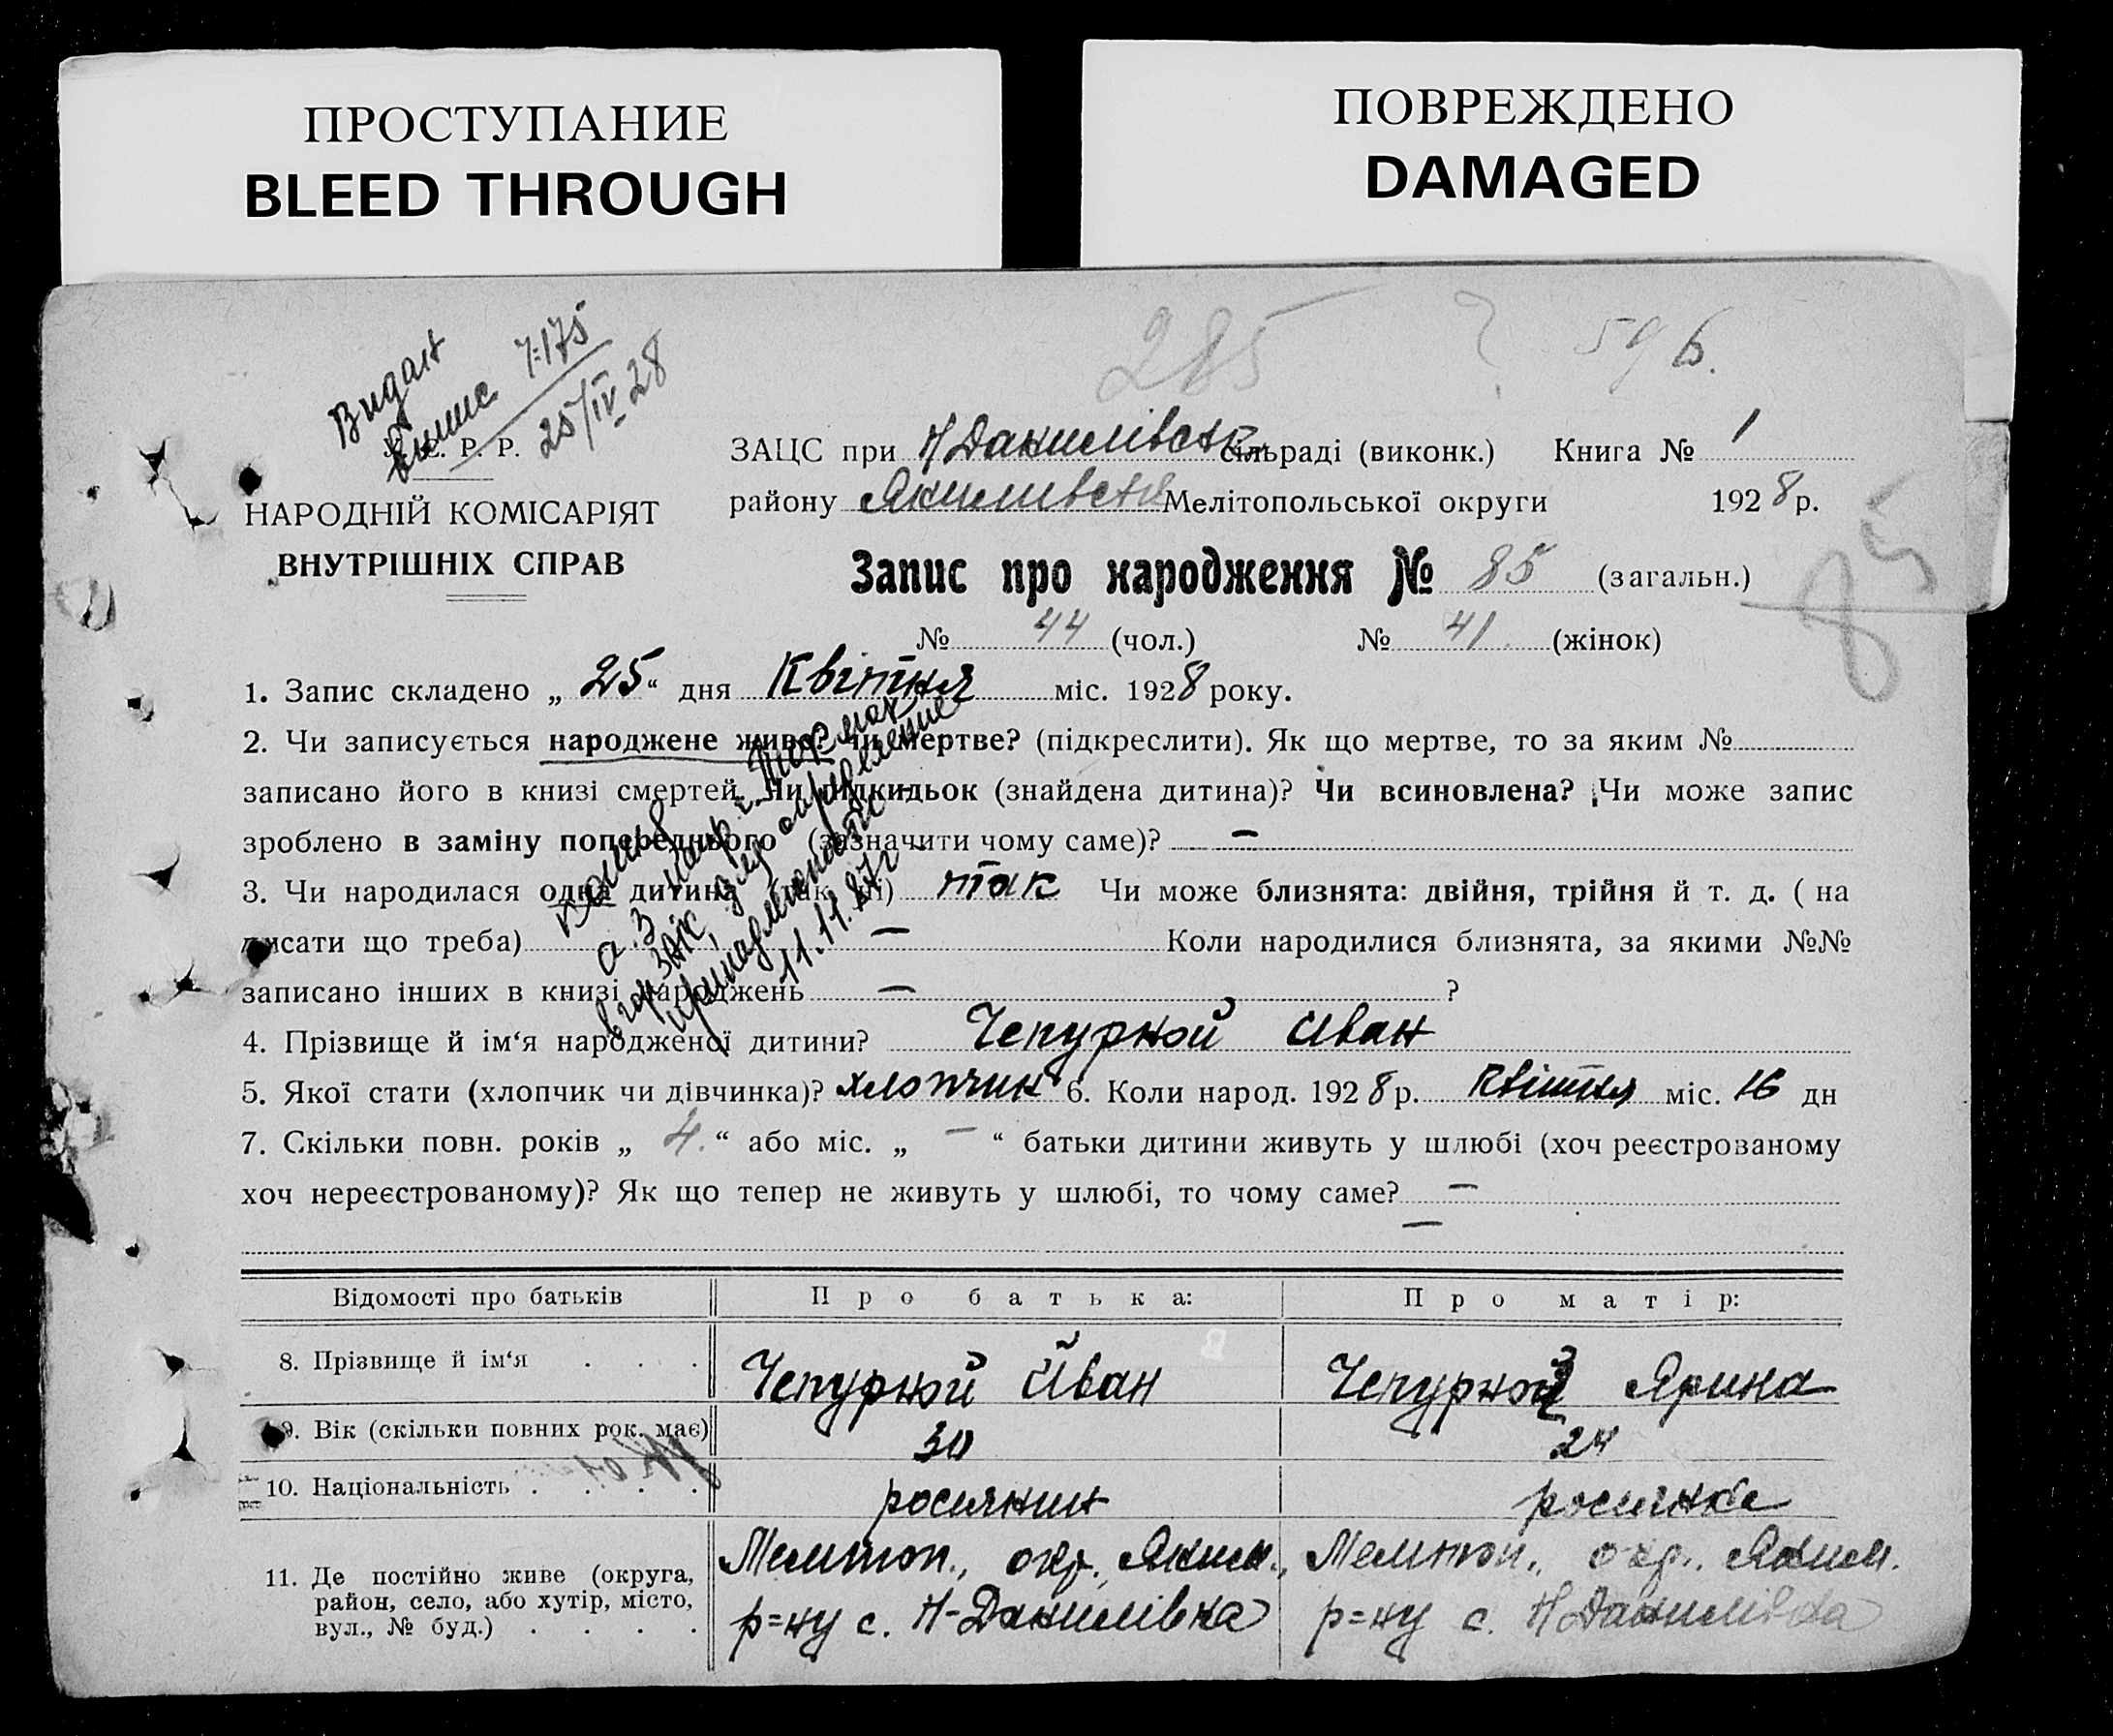 ПРОСТУПАНИЕ
BLEED THROUGH
ПОВРЕЖДЕНО
DAMAGED
285 59 б.
Видан
Випис 7:175
25/IV 28
У. С. Р. Р.
НАРОДНІЙ КОМІСАРІЯТ
ВНУТРІШНІХ СПРАВ
ЗАЦС при Н Данилівськ сільраді (виконк.) Книга № 1
району Якимивськ Мелітопольської округи 1928 р.
Запис про народження № 85 (загальн.)
85
№ 44 (чол.) № 41 (жінок)
1. Запис складено „ 25 “ дня Квітня міс. 1928 року.
2. Чи записується народжене живе? чи мертве? (підкреслити). Як що мертве, то за яким №
записано його в книзі смертей. Чи підкидьок (знайдена дитина)? Чи всиновлена? Чи може запис
зроблено в заміну попереднього (зазначити чому саме)? —
3. Чи народилася одна дитина (так, ні) так Чи може близнята: двійня, трійня й т. д. ( на
писати що треба) — Коли народилися близнята, за якими №№
записано інших в книзі народжень — ?
11.11.87г
4. Прізвище й ім‘я народженої дитини? Чепурной Иван
5. Якої стати (хлопчик чи дівчинка)? хлопчик 6. Коли народ. 1928 р. Квітня міс. 16 дн
7. Скільки повн. років „ 4. “ або міс. „ — “ батьки дитини живуть у шлюбі (хоч реєстрованому
хоч нереєстрованому)? Як що тепер не живуть у шлюбі, то чому саме? —
—
Відомості про батьків Про батька: Про матір:
8. Прізвище й ім‘я . . . Чепурной Йван Чепурной Ярина
9. Вік (скільки повних рок. має) 30 24
10. Національність . . . . росиянин росиянка
11. Де постійно живе (округа, район, село, або хутір, місто, вул., № буд.) . . . .
Мелитоп., окр., Яким., Мелитоп., окр. Яким.
р=ну с. Н-Данилівка р=ну с. Н Данилівка